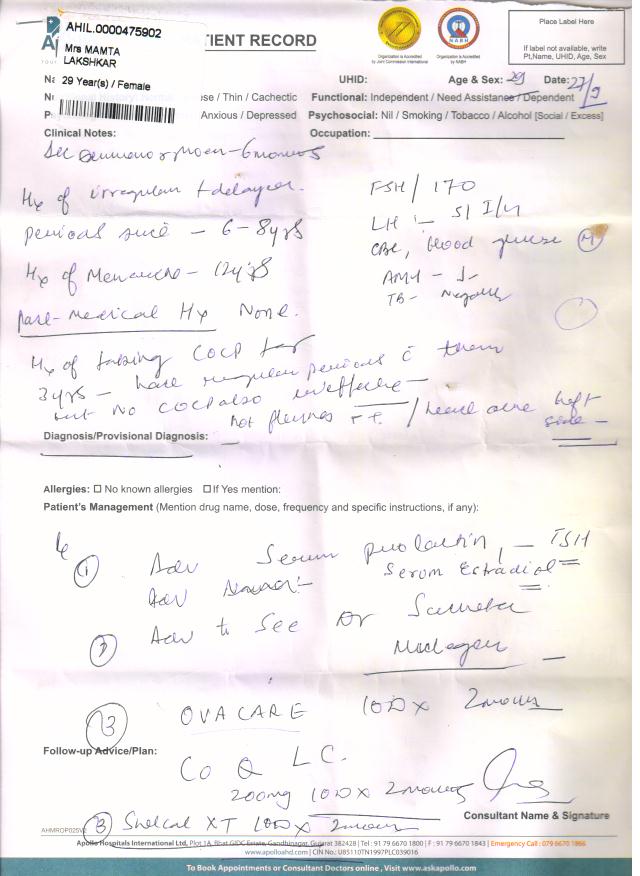 AHIL.0000475902
Mrs MAMTA
LAKSHKAR
29 Year(s) / Female
IENT RECORD
Organization is Accredited
by Joint Commission International
Organization is Accredited
by NABH
NABH
Place Label Here
If label not available, write
Pt.Name, UHID, Age, Sex
UHID: Age & Sex: 29 Date: 27/9
se / Thin / Cachectic Functional: Independent / Need Assistance / Dependent
Anxious / Depressed Psychosocial: Nil / Smoking / Tobacco / Alcohol [Social / Excess]
Clinical Notes: Occupation:
Sec - 6 months
Hx of irregular + delayed
periods since - 6-8 yrs
Hx of Menarche - 12 yrs
Past-medical Hx None.
FSH / 170
LH - 51
CBC, blood glucose
AMH - ↓
TB - Negative
Hx of taking COCP for
3 yrs - have regular periods c them
but NO COCP also ineffective
hot flushes ++ / head ache left
side -
Diagnosis/Provisional Diagnosis:
Allergies: ☐ No known allergies ☐ If Yes mention:
Patient's Management (Mention drug name, dose, frequency and specific instructions, if any):
① Adv Serum prolactin, - TSH
Serum Estradiol
Adv
② Adv to See Dr
③ OVACARE 1OD x 2 months
Follow-up Advice/Plan:
Co Q LC.
200mg 1OD x 2 months
Consultant Name & Signature
③ Shelcal XT 1OD x 2 months
AHMROP025V2
Apollo Hospitals International Ltd, Plot 1A, Bhat GIDC Estate, Gandhinagar, Gujarat 382428 | Tel : 91 79 6670 1800 | F : 91 79 6670 1843 | Emergency Call : 079 6670 1866
www.apolloahd.com | CIN No.: U85110TN1997PLC039016
To Book Appointments or Consultant Doctors online , Visit www.askapollo.com